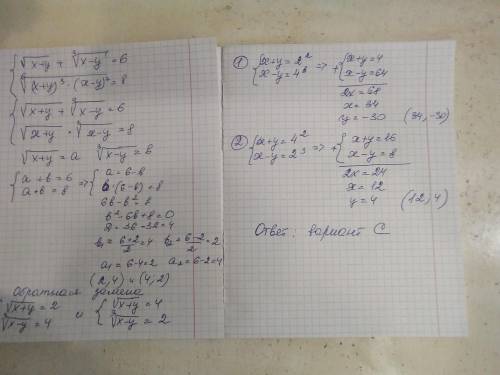 √x-y + ³√x-y = 6
⁶√(x+y)³ · (x-y)² = 8
√x+y + ³√x-y = 6
√x+y · ³√x-y = 8
√x+y = a ³√x-y = b
{ a + b = 6 => { a = 6-b
a·b = 8 b·(6-b) = 8
6b-b² = 8
b²-6b+8=0
D = 36-32=4
b₁ = 6+2/2 = 4 b₂ = 6-2/2 = 2
a₁ = 6-4=2 a₂ = 6-2=4
(2,4) и (4,2)
Обратная замена
√x+y = 2 и { √x+y = 4
³√x-y = 4 ³√x-y = 2
① { x+y = 2² => + { x+y = 4
x-y = 4³ x-y = 64
2x = 68
x = 34
y = -30 (34, -30)
② { x+y = 4² => + { x+y = 16
x-y = 2³ x-y = 8
2x = 24
x = 12
y = 4 (12, 4)
Ответ: вариант C